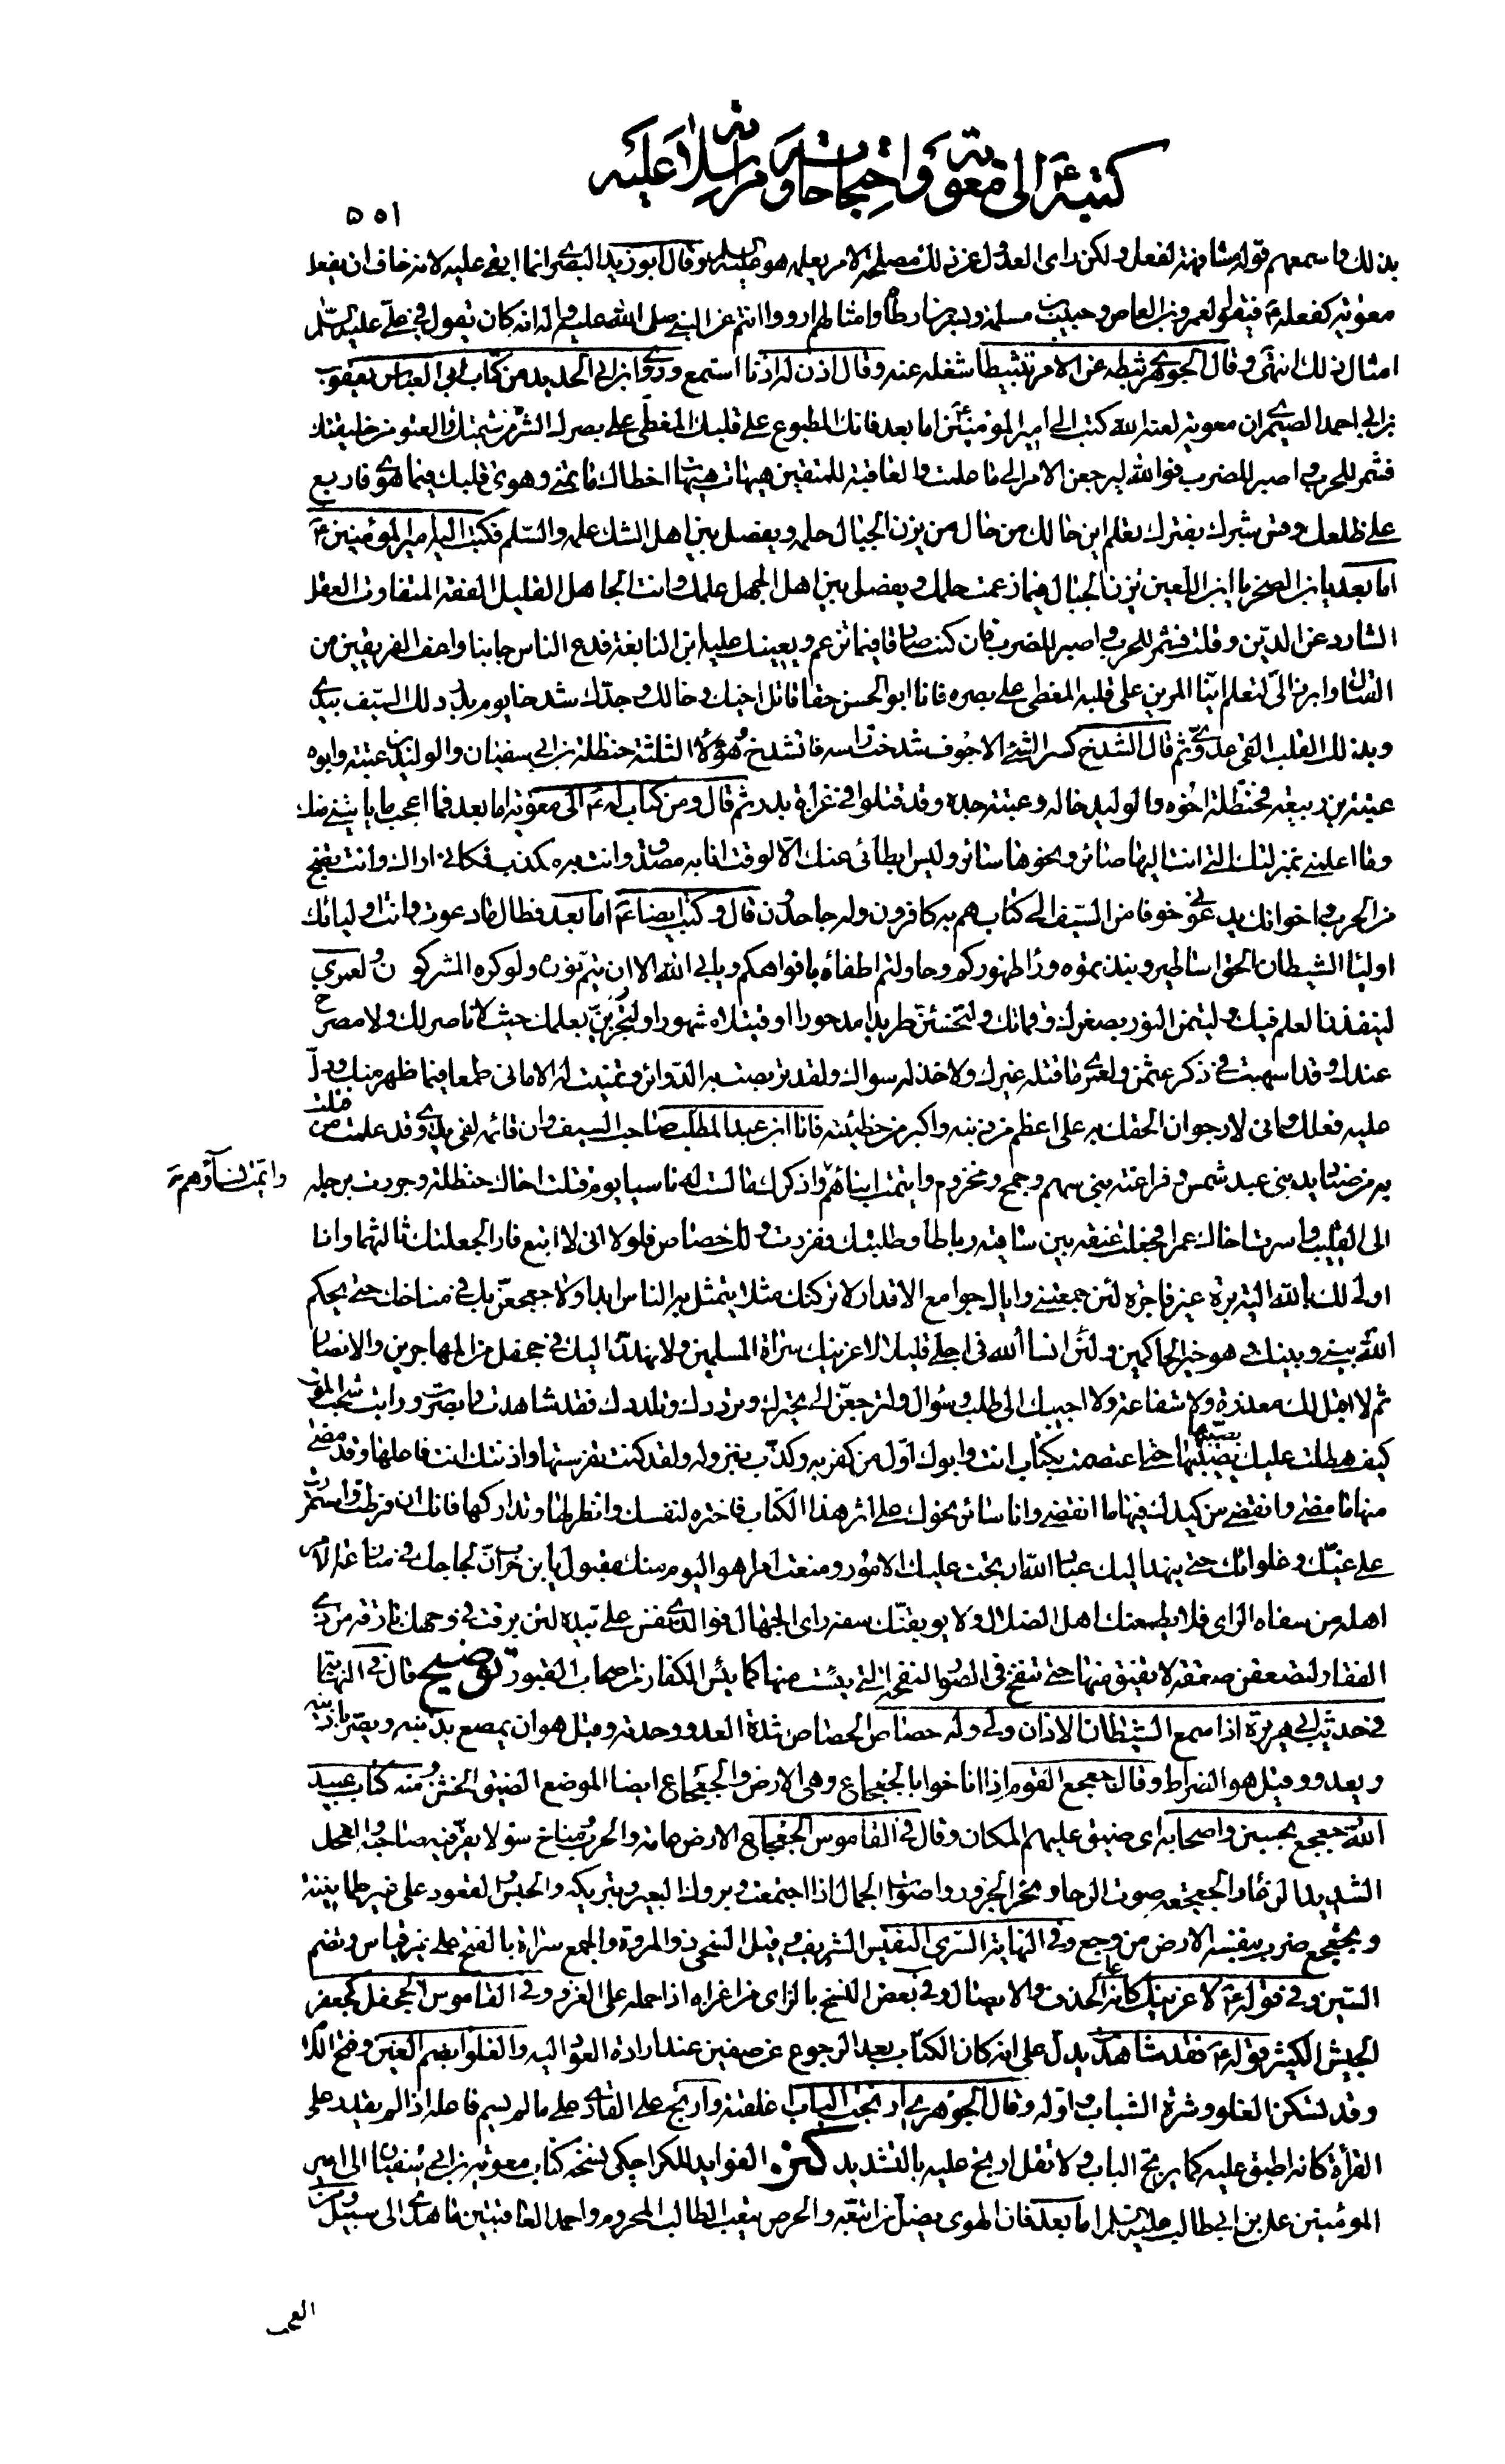 كتبه ع الى معوية واحتجاجاته ومراسلاته عليه
٥٥١
بذلك واسمعهم قوله مشافهة لفعل ولكن راى العدول عن ذلك مصلحة لامر يعلمه هو عليه السلم وقال ابو زيد البصرى انما ابقى عليه لانه خاف ان يفعل
معوية كفعله ع فيقول لعمرو بن العاص وحبيب بن مسلمة وبسر بن ارطاة وامثالهم ارووا انتم عن النبي صلى الله عليه واله انه كان يقول في علي عليه السلم
امثال ذلك انتهى وقال الجوهرى ثبطه عن الامر تثبيطا شغله عنه وقال اذن له اذنا استمع وروى ابن ابي الحديد من كتاب ابي العباس يعقوب
بن ابي احمد الصيمرى ان معوية لعنه الله كتب الى امير المؤمنين ع اما بعد فانك المطبوع على قلبك المغطى على بصرك الشر من شيمتك والعتو من خليقتك
فشمر للحرب واصبر للضرب فوالله ليرجعن الامر الى ما علمت والعاقبة للمتقين هيهات هيهات اخطاك ما تمنى وهوى قلبك فيما هوى فاربع
على ظلعك وقس شبرك بفترك تعلم اين حالك من حال من يزن الجبال حلمه ويفصل بين اهل الشك علمه والسلم فكتب اليه امير المؤمنين ع
اما بعد يا بن الصخر يا بن اللعين يزن الجبال فيما زعمت حلمك ويفصل بين اهل الجهل علمك وانت الجاهل القليل الفقه المتفاوت العقل
الشارد عن الدين وقلت فشمر للحرب واصبر للضرب فان كنت صادقا فيما تزعم ويعينك عليه ابن النابغة فدع الناس جانبا واعف الفريقين من
القتال وابرز الى لتعلم اينا المرين على قلبه المغطى على بصره فانا ابو الحسن حقا قاتل اخيك وخالك وجدك شدخا يوم بدر ذلك السيف بيدى
وبذلك القلب القى عدوى ثم قال الشدخ كسر الشئ الاجوف شدخت راسه فانشدخ وهؤلاء الثلثة حنظلة بن ابي سفيان والوليد بن عتبة وابوه
عتبة بن ربيعة فحنظلة اخوه والوليد خاله وعتبة جده وقد قتلوا في غزاة بدر ثم قال ومن كتاب له ع الى معوية اما بعد فما اعجب ما ياتيني منك
وما اعلمني بمنزلتك التي انت اليها صائر ونحوها سائر وليس ابطائى عنك الا لوقت انا به مصدق وانت به مكذب فكانى اراك وانت تضج
من الحرب واخوانك يدعونى خوفا من السيف الى كتاب هم به كافرون وله جاحدون قال وكتب ايضا ع اما بعد فطال ما دعوت انت واولياؤك
اولياء الشيطان الحق اساطير ونبذتموه وراء ظهوركم وحاولتم اطفاءه بافواهكم ويابى الله الا ان يتم نوره ولو كره المشركون ولعمرى
لينفذن العلم فيك وليتمن النور بصغرك وقمائك ولتخسئن طريدا مدحورا او قتيلا مثبورا ولتجزين بعلمك حيث لا ناصر لك ولا مصرخ
عندك وقد اسهبت في ذكر عثمن ولعمرى ما قتله غيرك ولا خذله سواك ولقد تربصت به الدوائر وتمنيت له الامانى طمعا فيما ظهر منك ودل
عليه فعلك وانى لارجو ان الحقك به على اعظم من ذنبه واكبر من خطيئته فانا ابن عبد المطلب صاحب السيف وان قائمه لفي يدى وقد علمت من قتلت
به من صناديد بنى عبد شمس وفراعنة بنى سهم وجمح ومخزوم وايتمت ابناءهم واذكرك ما لست له ناسيا يوم قتلت اخاك حنظلة وجررت برجله
وايمت نساءهم صح
الى القليب واسرت اخاك عمرا فجعلت عنقه بين ساقيه رباطا وطلبتك ففررت ولك حصاص فلولا انى لا اتبع فارا لجعلتك ثالثهما وانا
اولى لك بالله الية برة غير فاجرة لئن جمعتني واياك جوامع الاقدار لاتركنك مثلا يتمثل به الناس ابدا ولاجعجعن بك في مناخك حتى يحكم
الله بينى وبينك وهو خير الحاكمين ولئن انسا الله في اجلى قليلا لاغزينك سراة المسلمين ولانهدن اليك في جحفل من المهاجرين والانصار
ثم لا اقبل لك معذرة ولا شفاعة ولا اجيبك الى طلب وسؤال ولترجعن الى تحيرك وترددك وتلددك فقد شاهدت وابصرت ورايت سحب الموت
كيف هطلت عليك بصيبها حتى اعتصمت بكتاب انت وابوك اول من كفر به وكذب بنزوله ولقد كنت تفرستها واذنتك انك فاعلها وقد مضى
منها ما مضى وانقضى من كيدك فيها ما انقضى وانا سائر نحوك على اثر هذا الكتاب فاختر لنفسك وانظر لها وتداركها فانك ان فرطت واستمررت
على غيك وغلوائك حتى ينهد اليك عباد الله ارتجت عليك الامور ومنعت امرا هو اليوم منك مقبول يا بن حرب ان لجاجك في منازعة الامر
اهله من سفاه الراى فلا يطمعنك اهل الضلال ولا يوبقنك سفه راى الجهال فوالذى نفس على بيده لئن برقت في وجهك بارقة من ذى
الفقار لتصعقن صعقة لا تفيق منها حتى تنفخ في الصور النفخة التي يئست منها كما يئس الكفار من اصحاب القبور توضيح قال في النهاية
في حديث ابي هريرة اذا سمع الشيطان الاذان ولى وله حصاص الحصاص شدة العدو وحدته وقيل هو ان يمصع بذنبه ويصر باذنيه
ويعدو وقيل هو الضراط وقال جعجع القوم اذا اناخوا بالجعجاع وهى الارض والجعجاع ايضا الموضع الضيق الخشن ومنه كتاب عبيد
الله جعجع بحسين واصحابه اى ضيق عليهم المكان وقال في القاموس الجعجاع الارض عامة والحرب ومناخ سوء لا يقر فيه صاحبه والفحل
الشديد الرغاء والجعجعة صوت الرحا ونحر الجزور واصوات الجمال اذا اجتمعت وبروك البعير وتبريكه والحبس والقعود على غير طمانينة
وتجعجع ضرب بنفسه الارض من وجع وفي النهاية السرى النفيس الشريف وقيل السخى ذو المروة والجمع سراة بالفتح على غير قياس وتضم
السين وفي قوله ع لاغزينك كانه على الحذف والايصال وفي بعض النسخ بالزاى من اغزاه اذا حمله على الغزو وفي القاموس الجحفل كجعفر
الجيش الكثير قوله ع فقد شاهدت يدل على انه كان الكتاب بعد الرجوع عن صفين عند ارادة العود اليه والغلواء بضم الغين وفتح اللام
وقد تسكن الغلو وشرة الشباب واوله وقال الجوهرى ارتجت الباب اغلقته وارتج على القارى على ما لم يسم فاعله اذا لم يقدر على
القرأة كانه اطبق عليه كما يرتج الباب ولا تقل ارتج عليه بالتشديد كنز الفوايد للكراجكى نسخة كتاب معوية بن ابي سفيان الى امير
المؤمنين على بن ابي طالب عليه السلم اما بعد فان الهوى يضل من اتبعه والحرص يتعب الطالب المحروم واحمد العاقبتين ما هدى الى سبيل